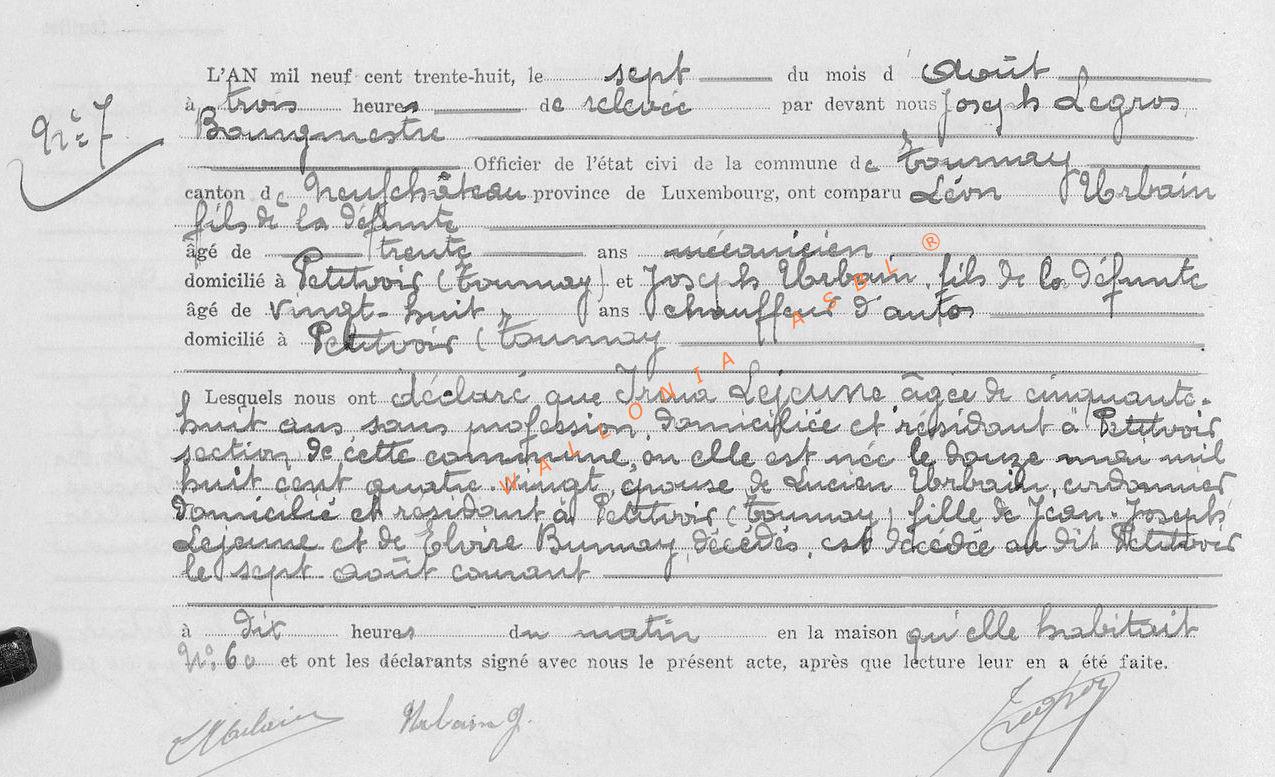 L'AN mil neuf cent trente-huit, le sept du mois d' Août
à trois heures de relevée par devant nous Joseph Legros
Nº 7
Bourgmestre
Officier de l'état civi de la commune de Tournay
canton de Neufchâteau province de Luxembourg, ont comparu Léon Urbain
fils de la défunte
âgé de trente ans mécanicien
domicilié à Petitvoir (Tournay) et Joseph Urbain, fils de la défunte
âgé de vingt-huit ans chauffeur d'autos
domicilié à Petitvoir (Tournay
Lesquels nous ont déclaré que Lejeune âgée de cinquante-
huit ans sans profession, domiciliée et résidant à Petitvoir
section de cette commune, ou elle est née le douze mai mil
huit cent quatre vingt, épouse de Lucien Urbain, cordonnier
domicilié et résidant à Petitvoir (Tournay) fille de Jean-Joseph
Lejeune et de Elvire décédés, est décédée au dit Petitvoir
le sept août courant
à dix heures du matin en la maison qu'elle habitait
Nº 60 et ont les déclarants signé avec nous le présent acte, après que lecture leur en a été faite.
Urbain Urbain J.
WALLONIA ASBL ®